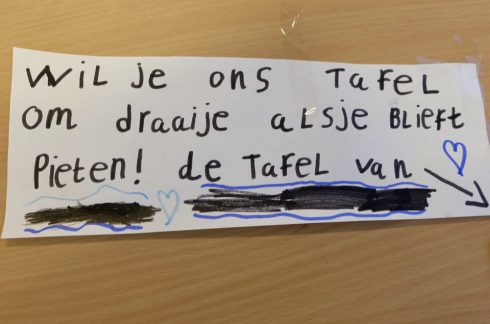 Wil je ons Tafel
om draaije alsje Blieft
Pieten! de Tafel van